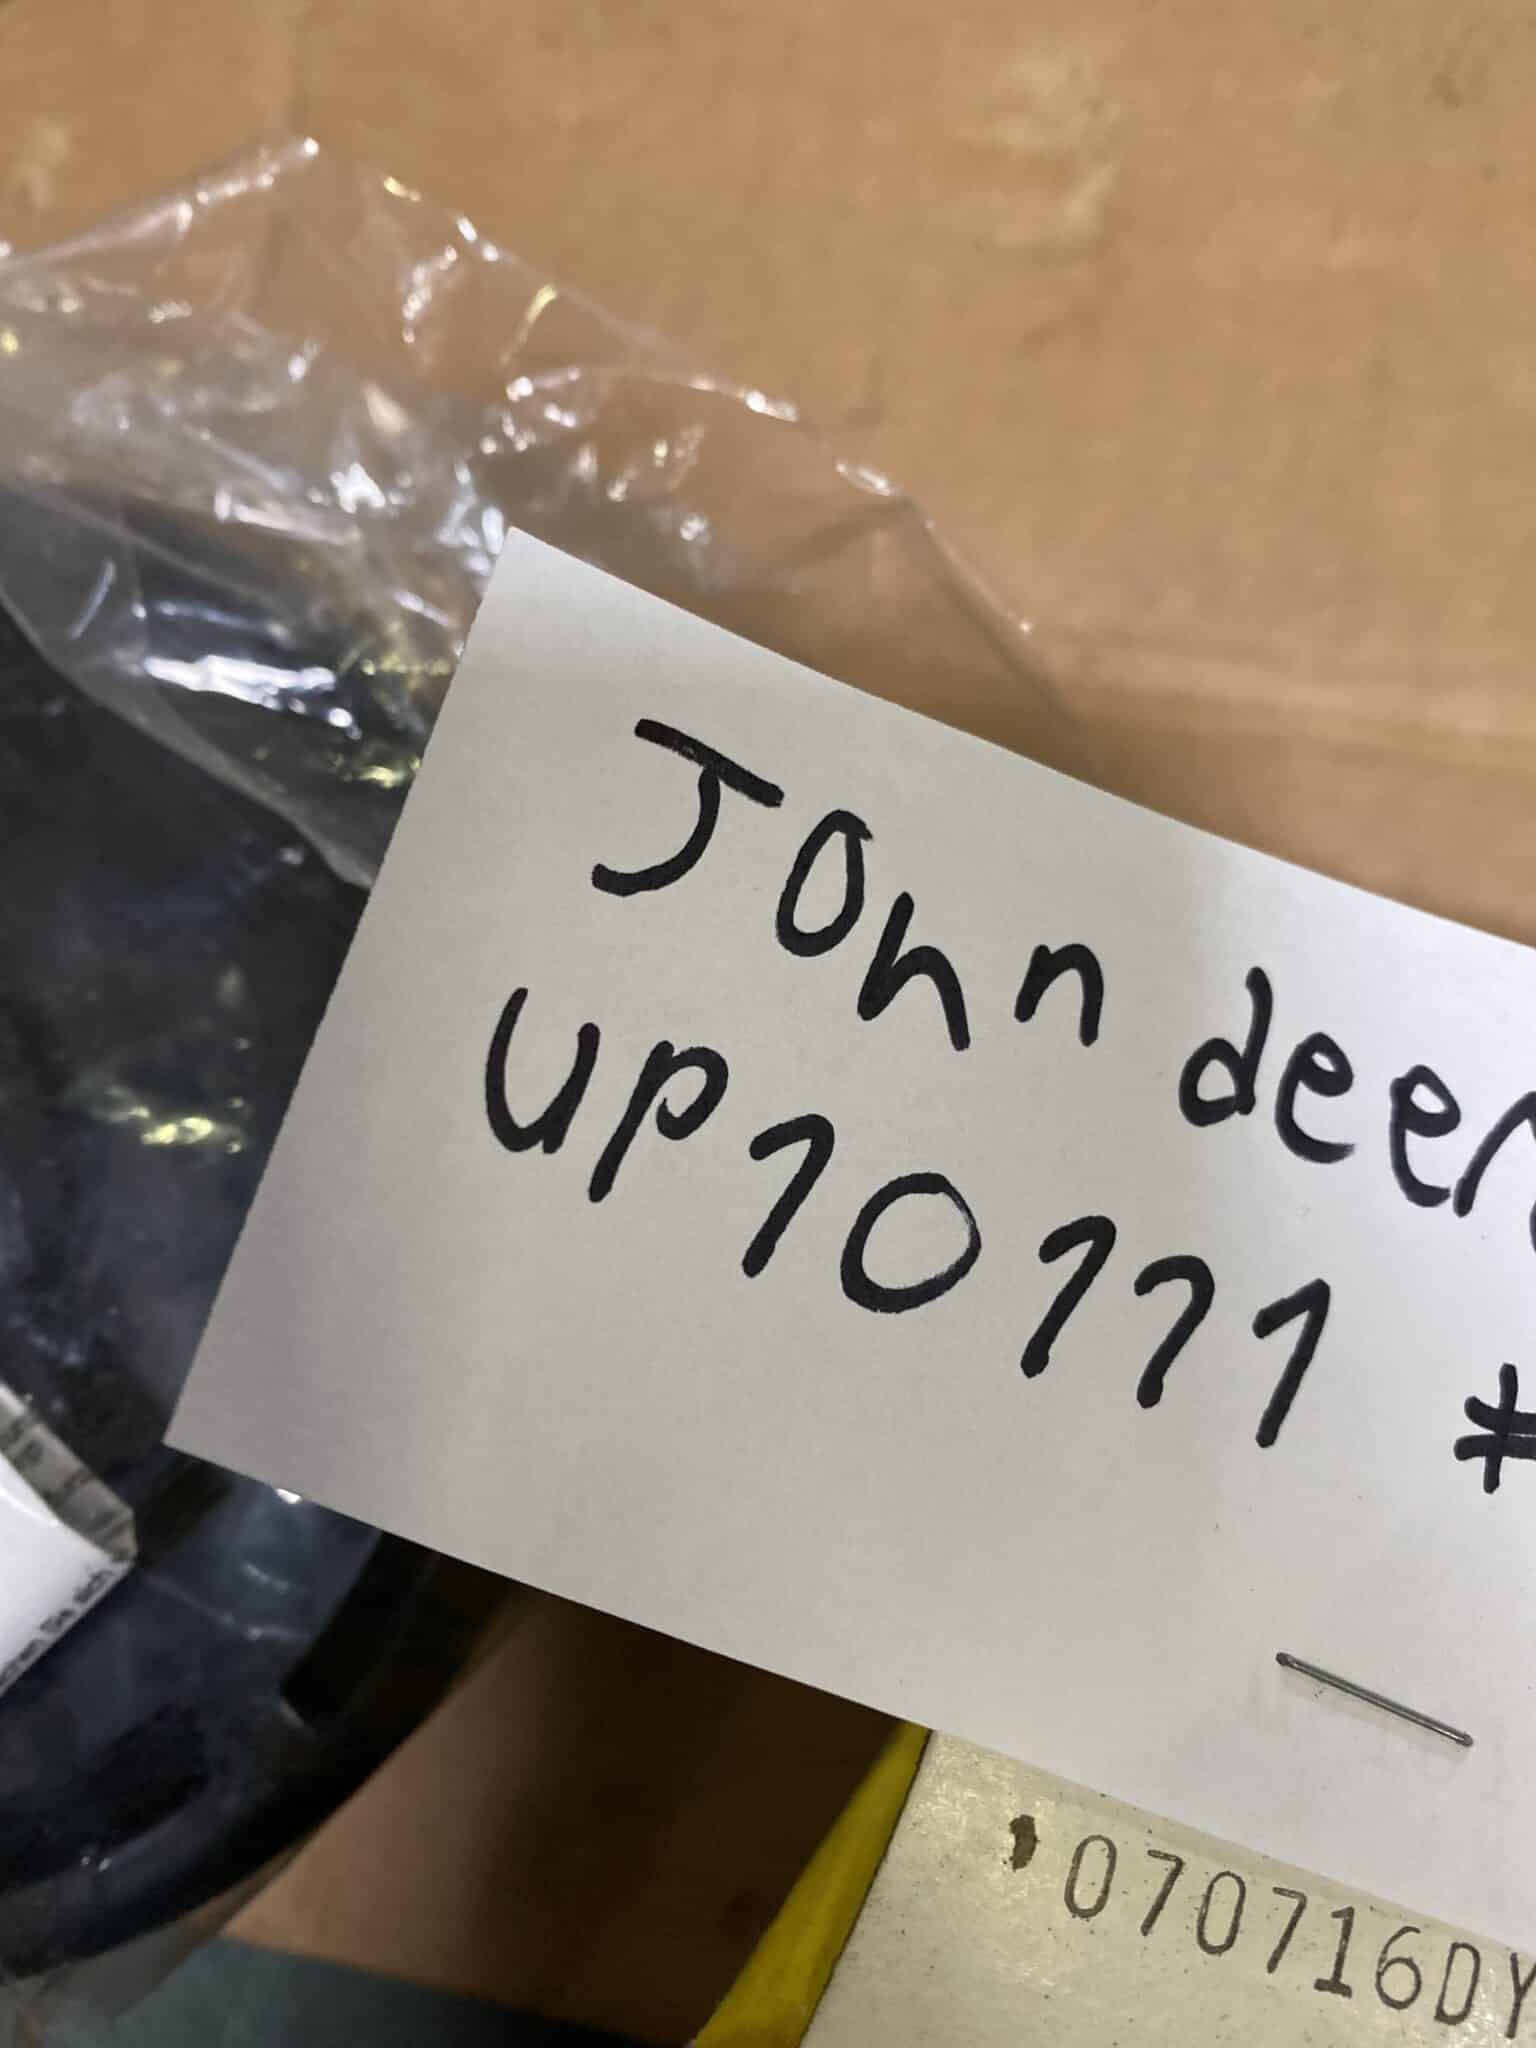 John deer
up10111 #
070716DY